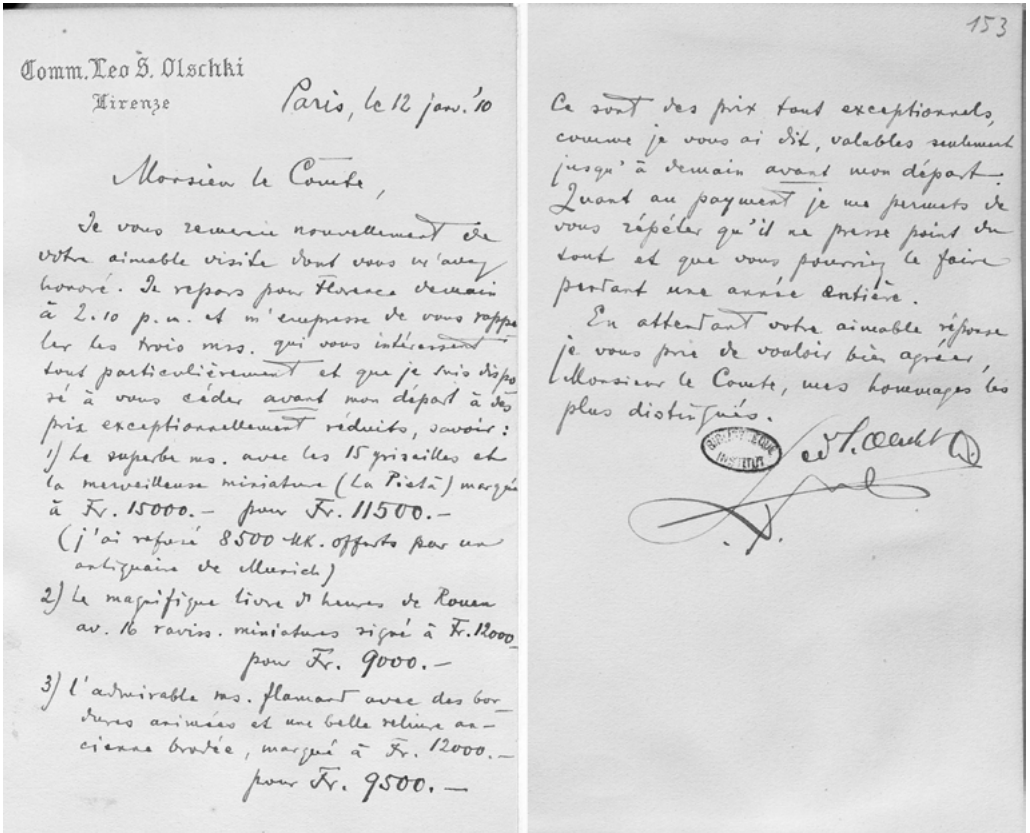 Comm. Leo S. Olschki
Firenze
Paris, le 12 janv. '10
Monsieur le Comte,
Je vous remercie nouvellement de
votre aimable visite dont vous m'avez
honoré. Je repars pour Florence demain
à 2.10 p. m. et m'empresse de vous rappe
ler les trois mss. qui vous intéressent
tout particulièrement et que je suis dispo
sé à vous céder avant mon départ à des
prix exceptionnellement réduits, savoir :
1) Le superbe ms. avec les 15 grisailles et
la merveilleuse miniature (La Pietà) marqué
à Fr. 15000.- pour Fr. 11500.-
(j'ai refusé 8500 Mk. offerts par un
antiquaire de Munich)
2) Le magnifique livre d'heures de Rouen
av. 16 raviss. miniatures signé à Fr. 12000
pour Fr. 9000.-
3) l'admirable ms. flamand avec des bor
dures animées et une belle reliure an-
cienne brodée, marqué à Fr. 12000.-
pour Fr. 9500.-
153
Ce sont des prix tout exceptionnels,
comme je vous ai dit, valables seulement
jusqu'à demain avant mon départ.
Quant au payment je me permets de
vous répéter qu'il ne presse point du
tout et que vous pourriez le faire
pendant une année entière.
En attendant votre aimable réponse
je vous prie de vouloir bien agréer,
Monsieur le Comte, mes hommages les
plus distingués.
BIBLIOTHEQUE
INSTITUT